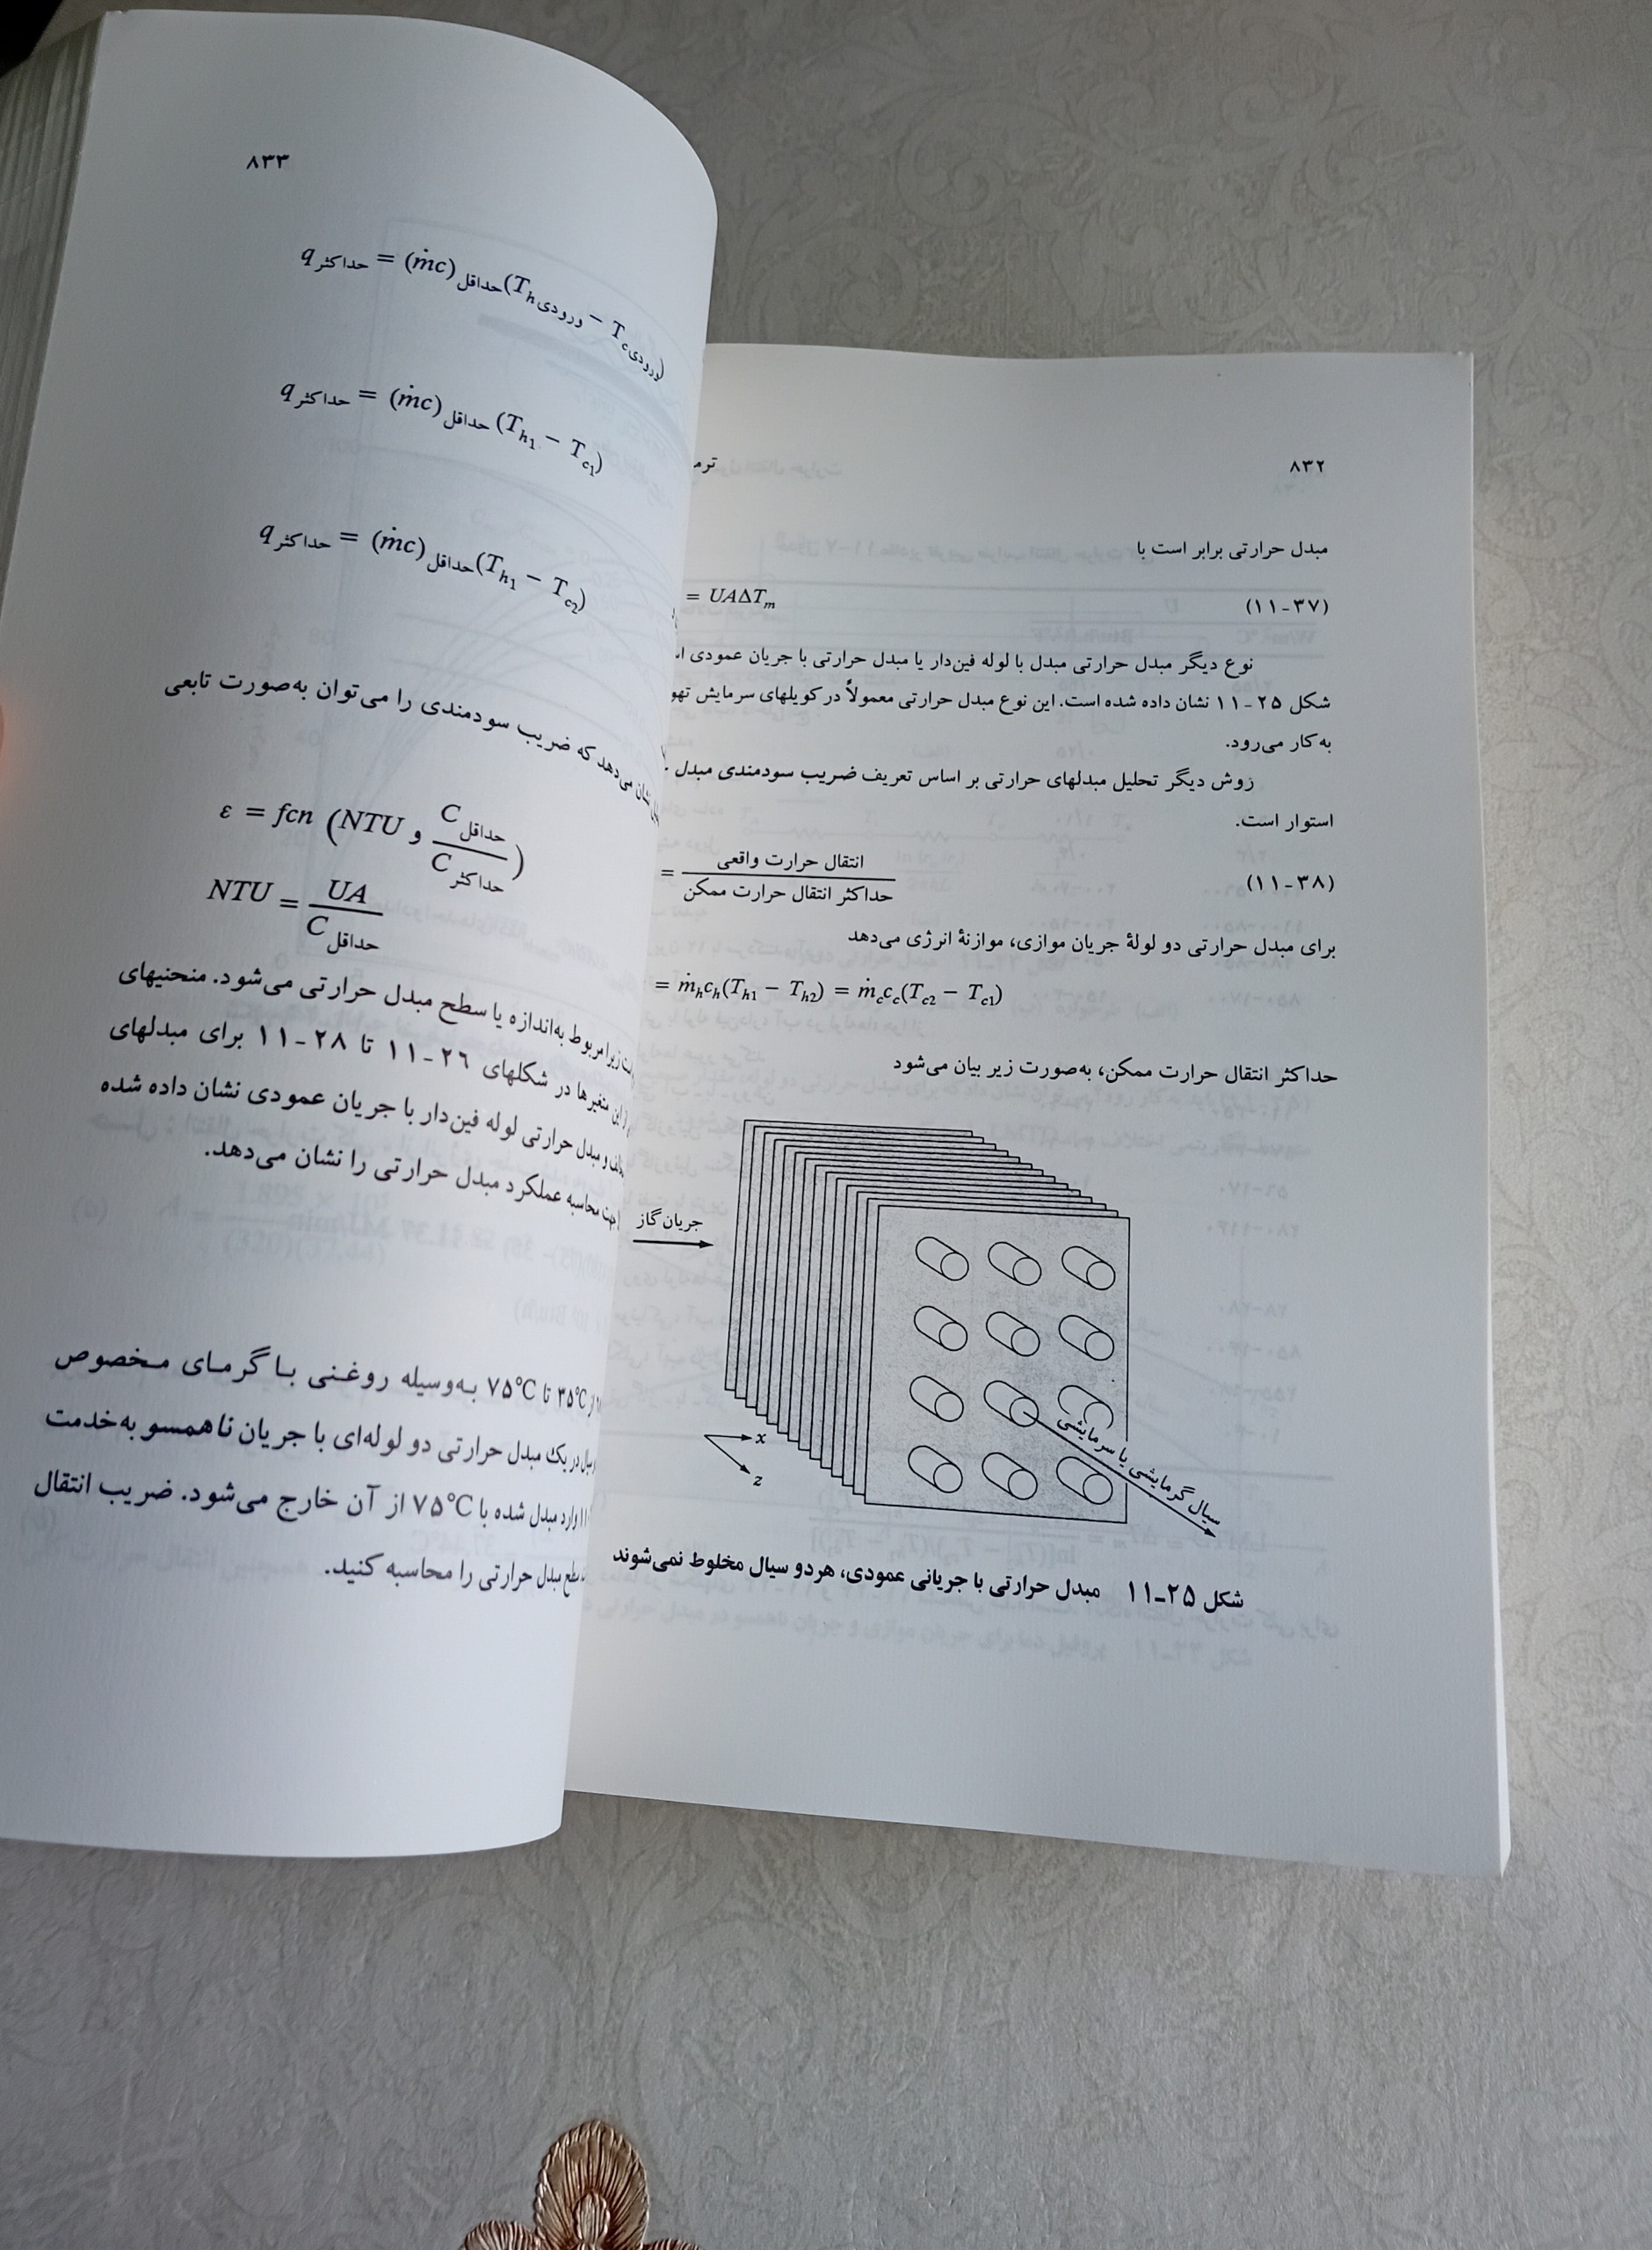 ۸۳۲
مبدل حرارتی برابر است با
= UAΔT_m (۱۱-۳۷)
نوع دیگر مبدل حرارتی مبدل با لوله فین‌دار یا مبدل حرارتی با جریان عمودی
شکل ۲۵-۱۱ نشان داده شده است. این نوع مبدل حرارتی معمولاً در کویلهای سرمایش
به کار می‌رود.
روش دیگر تحلیل مبدلهای حرارتی بر اساس تعریف ضریب سودمندی مبدل
استوار است.
= انتقال حرارت واقعی / حداکثر انتقال حرارت ممکن (۱۱-۳۸)
برای مبدل حرارتی دو لولهٔ جریان موازی، موازنهٔ انرژی می‌دهد
= ṁ_h c_h(T_h1 − T_h2) = ṁ_c c_c(T_c2 − T_c1)
حداکثر انتقال حرارت ممکن، به‌صورت زیر بیان می‌شود
جریان گاز
x
z
سیال گرمایشی یا سرمایشی
شکل ۲۵-۱۱ مبدل حرارتی با جریانی عمودی، هردو سیال مخلوط نمی‌شوند
۸۳۳
q حداکثر = (ṁc) حداقل (T_h ورودی − T_c ورودی)
q حداکثر = (ṁc) حداقل (T_h1 − T_c1)
q حداکثر = (ṁc) حداقل (T_h1 − T_c2)
نشان می‌دهد که ضریب سودمندی را می‌توان به‌صورت تابعی
ε = fcn (NTU و C حداقل / C حداکثر)
NTU = UA / C حداقل
زیرا مربوط به‌اندازه یا سطح مبدل حرارتی می‌شود. منحنیهای
این متغیرها در شکلهای ۲۶-۱۱ تا ۲۸-۱۱ برای مبدلهای
و مبدل حرارتی لوله فین‌دار با جریان عمودی نشان داده شده
جهت محاسبه عملکرد مبدل حرارتی را نشان می‌دهد.
از ۳۵°C تا ۷۵°C به‌وسیله روغنی با گرمای مخصوص
در یک مبدل حرارتی دو لوله‌ای با جریان ناهمسو به‌خدمت
وارد مبدل شده با ۷۵°C از آن خارج می‌شود. ضریب انتقال
سطح مبدل حرارتی را محاسبه کنید.